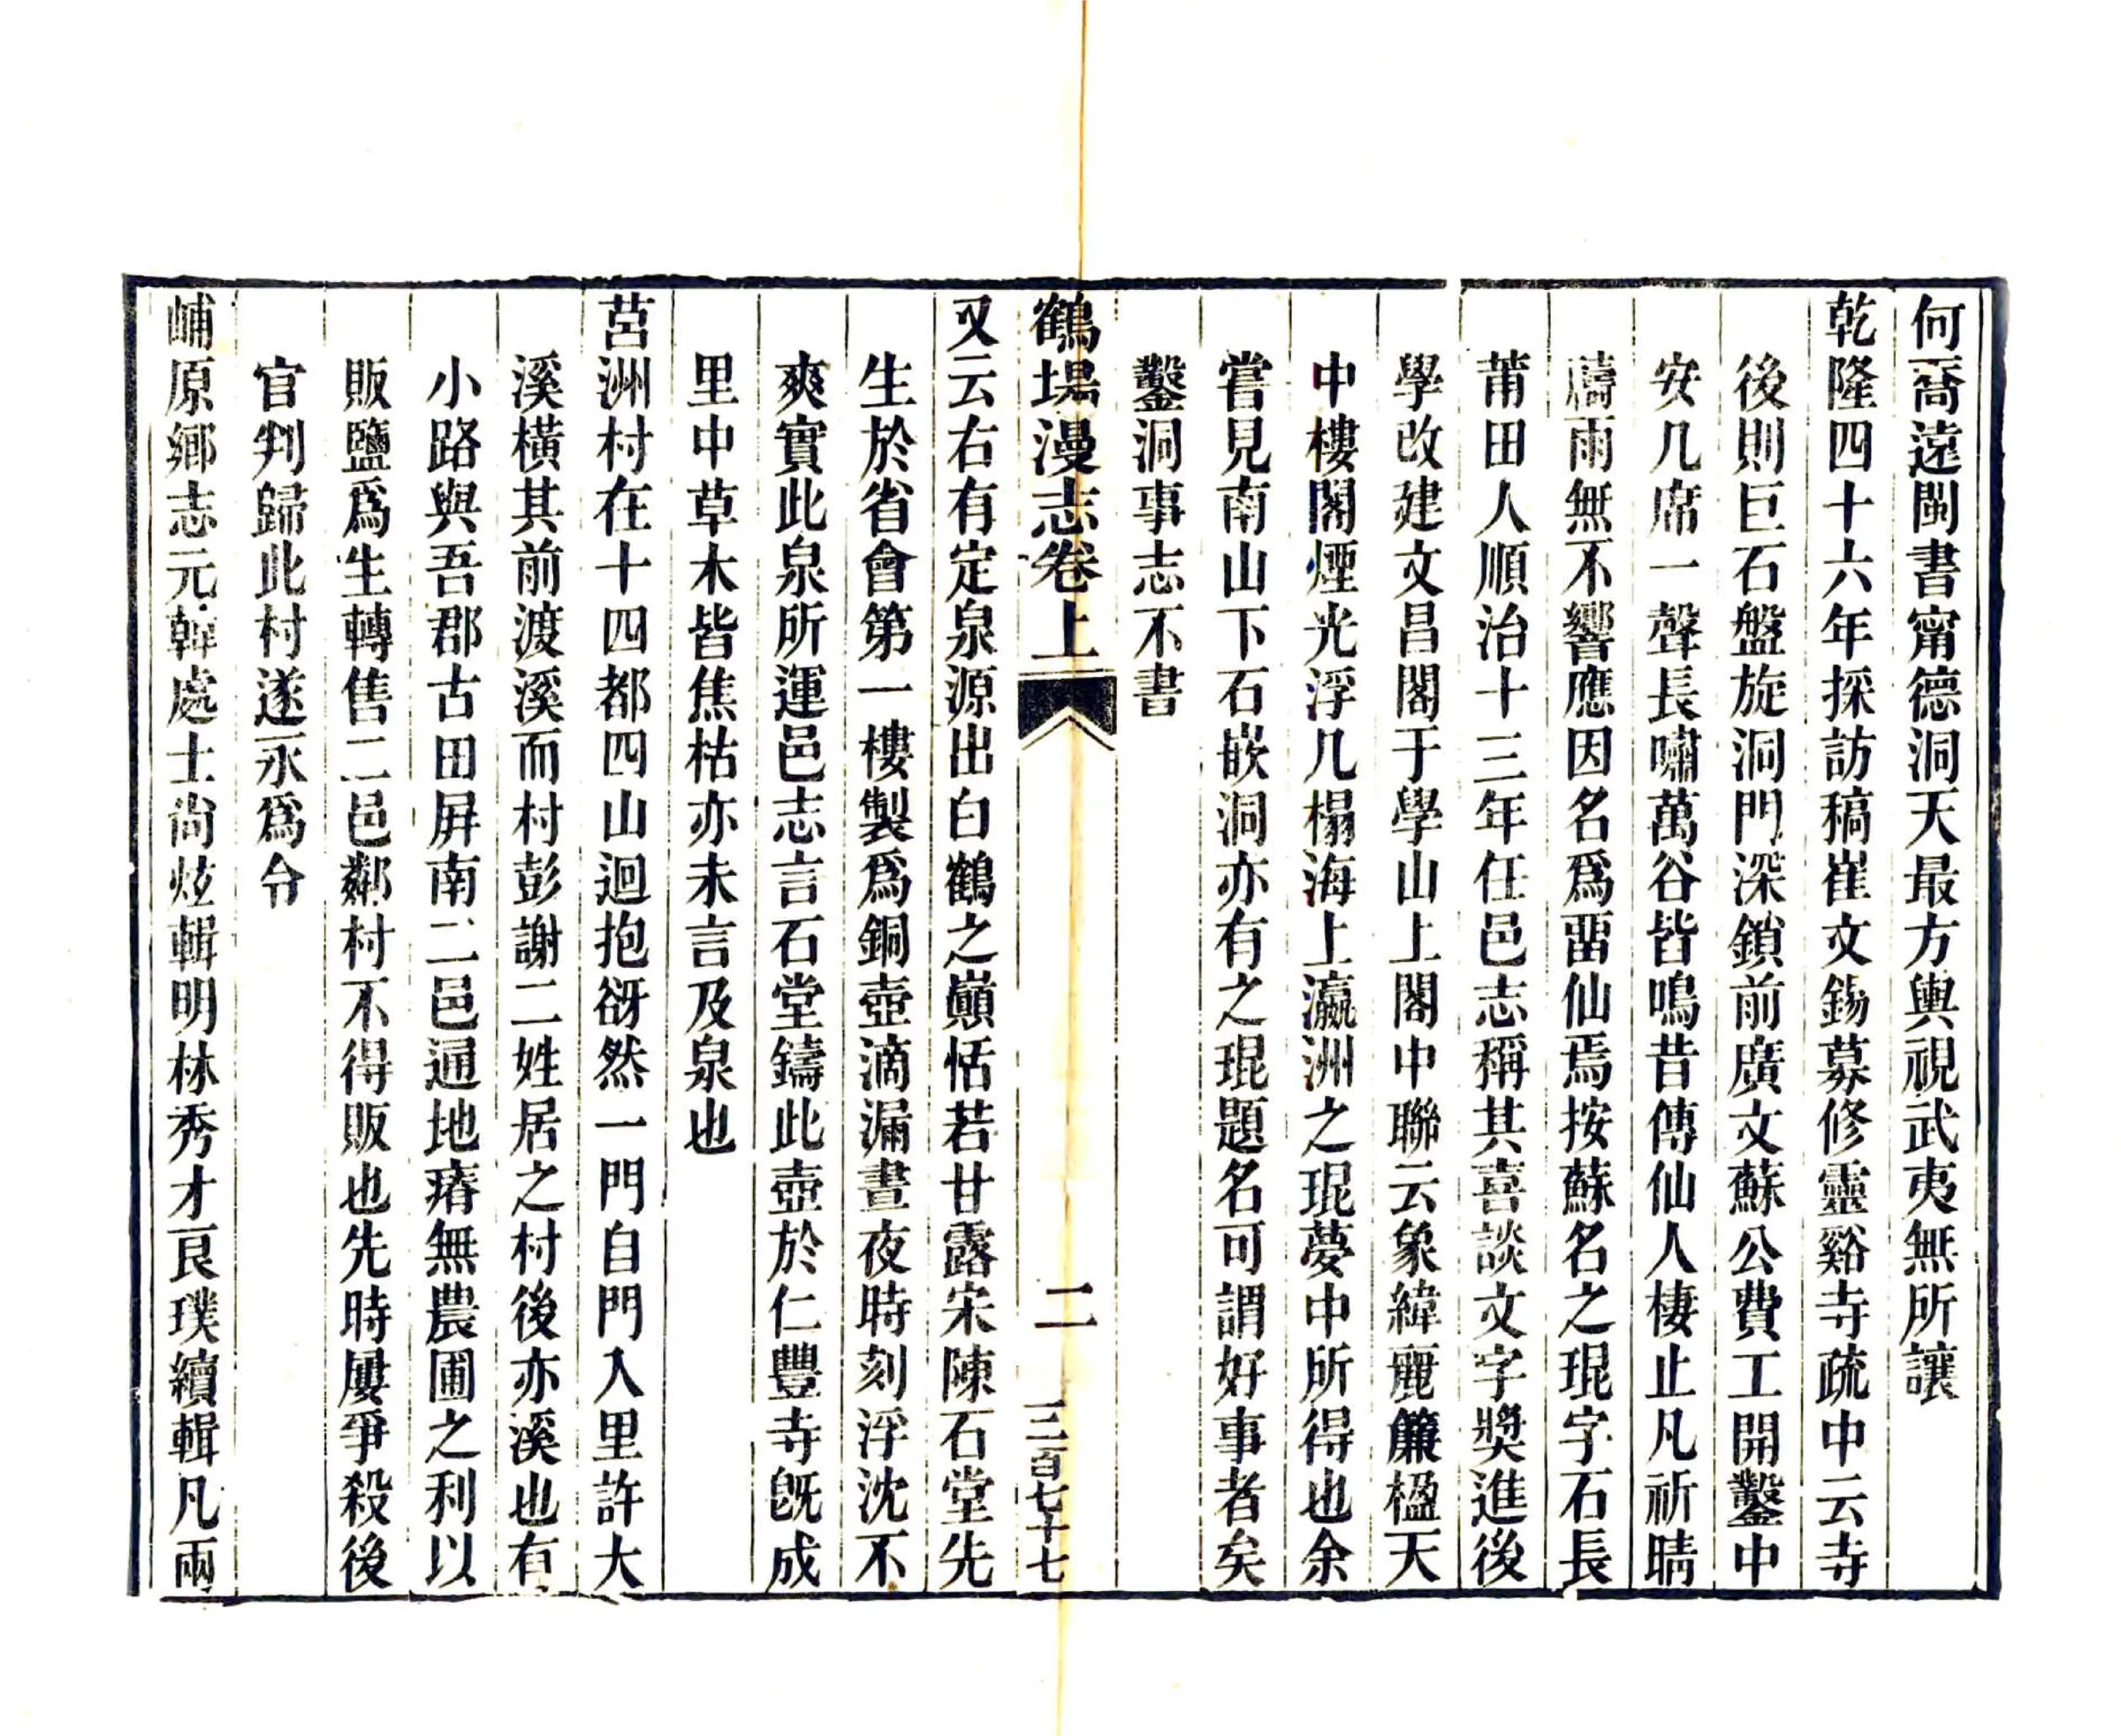 何喬遠閩書甯德洞天最方輿視武夷無所讓
乾隆四十六年採訪稿崔文錫募修靈谿寺疏中云寺
後則巨石盤旋洞門深鎖前廣文蘇公費工開鑿中
安几席一聲長嘯萬谷皆鳴昔傳仙人棲止凡祈晴
禱雨無不響應因名爲霤仙焉按蘇名之琨字石長
莆田人順治十三年任邑志稱其喜談文字奬進後
學改建文昌閣于學山上閣中聯云象緯麗簾楹天
中樓閣煙光浮几榻海上瀛洲之琨夢中所得也余
嘗見南山下石嵌洞亦有之琨題名可謂好事者矣
鑿洞事志不書
鶴場漫志卷上
二
三百七十七
又云右有定泉泉源出白鶴之巓恬若甘露宋陳石堂先
生於省會第一樓製爲銅壺滴漏晝夜時刻浮沈不
爽實此泉所運邑志言石堂鑄此壺於仁豐寺旣成
里中草木皆焦枯亦未言及泉也
莒洲村在十四都四山迴抱谺然一門自門入里許大
溪橫其前渡溪而村彭謝二姓居之村後亦溪也有
小路與吾郡古田屏南二邑通地瘠無農圃之利以
販鹽爲生轉售二邑鄰村不得販也先時屢爭殺後
官判歸此村遂永爲令
峬原鄉志元韓處士尚炫輯明林秀才艮璞續輯凡兩